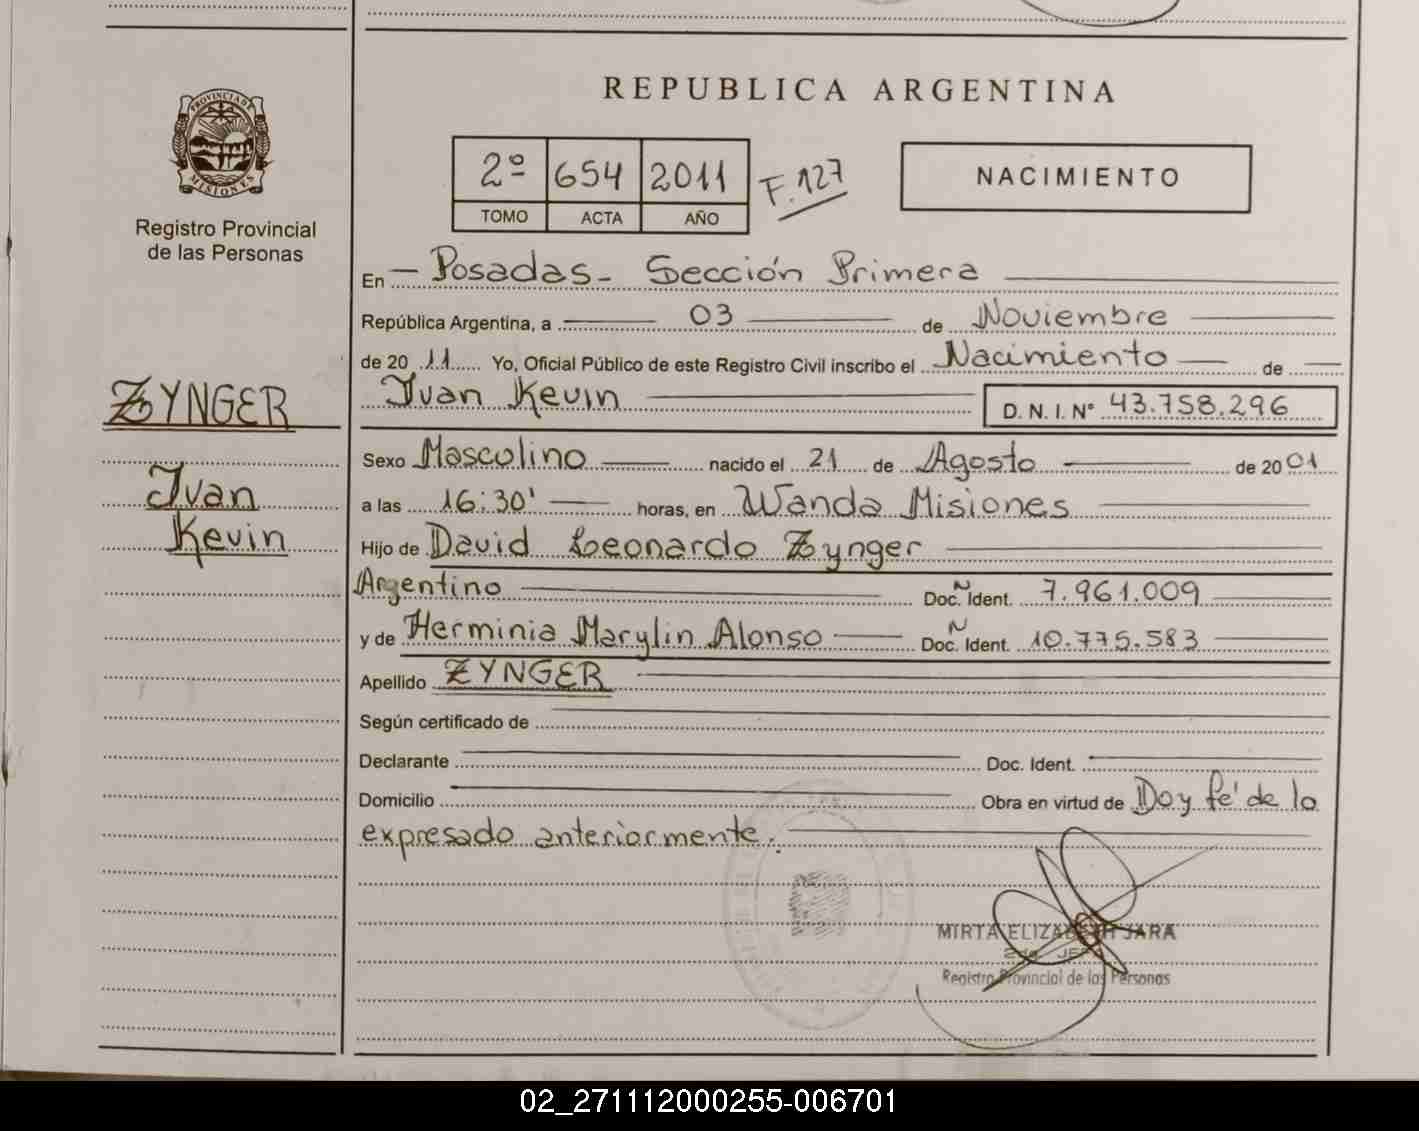 PROVINCIA DE
MISIONES
Registro Provincial
de las Personas
ZYNGER
Ivan
Kevin
REPUBLICA ARGENTINA
2º 654 2011 F. 127
TOMO ACTA AÑO
NACIMIENTO
En — Posadas - Sección Primera
República Argentina, a 03 de Noviembre
de 20 11 Yo, Oficial Público de este Registro Civil inscribo el Nacimiento de
Ivan Kevin D. N. I. N° 43.758.296
Sexo Masculino nacido el 21 de Agosto de 2001
a las 16:30' horas, en Wanda Misiones
Hijo de David Leonardo Zynger
Argentino Doc. Ident. 7.961.009
y de Herminia Marylin Alonso Doc. Ident. 10.775.583
Apellido ZYNGER
Según certificado de
Declarante Doc. Ident.
Domicilio Obra en virtud de Doy fé de lo
expresado anteriormente.
MIRTA ELIZABETH JARA
2da JEFA
Registro Provincial de las Personas
02_271112000255-006701